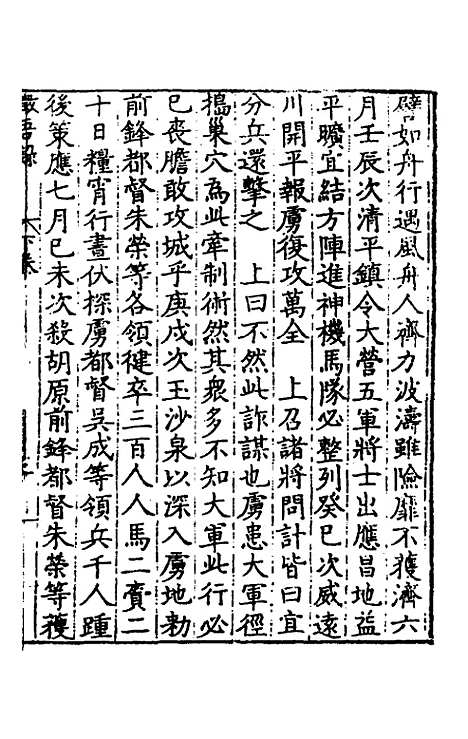 譬如舟行遇風舟人齊力波濤雖險靡不獲濟六
月壬辰次清平鎮令大營五軍將士出應昌地益
平曠宜結方陣進神機馬隊必整列癸巳次威遠
川開平報虜復攻萬全　上召諸將問計皆曰宜
分兵還擊之　上曰不然此詐謀也虜患大軍徑
搗巢穴為此牽制術然其衆多不知大軍此行必
已喪膽敢攻城乎庚戌次玉沙泉以深入虜地勑
前鋒都督朱榮等各領健卒三百人人馬二賫二
十日糧宵行晝伏探虜都督吳成等領兵千人踵
後策應七月己未次殺胡原前鋒都督朱榮等獲
下卷